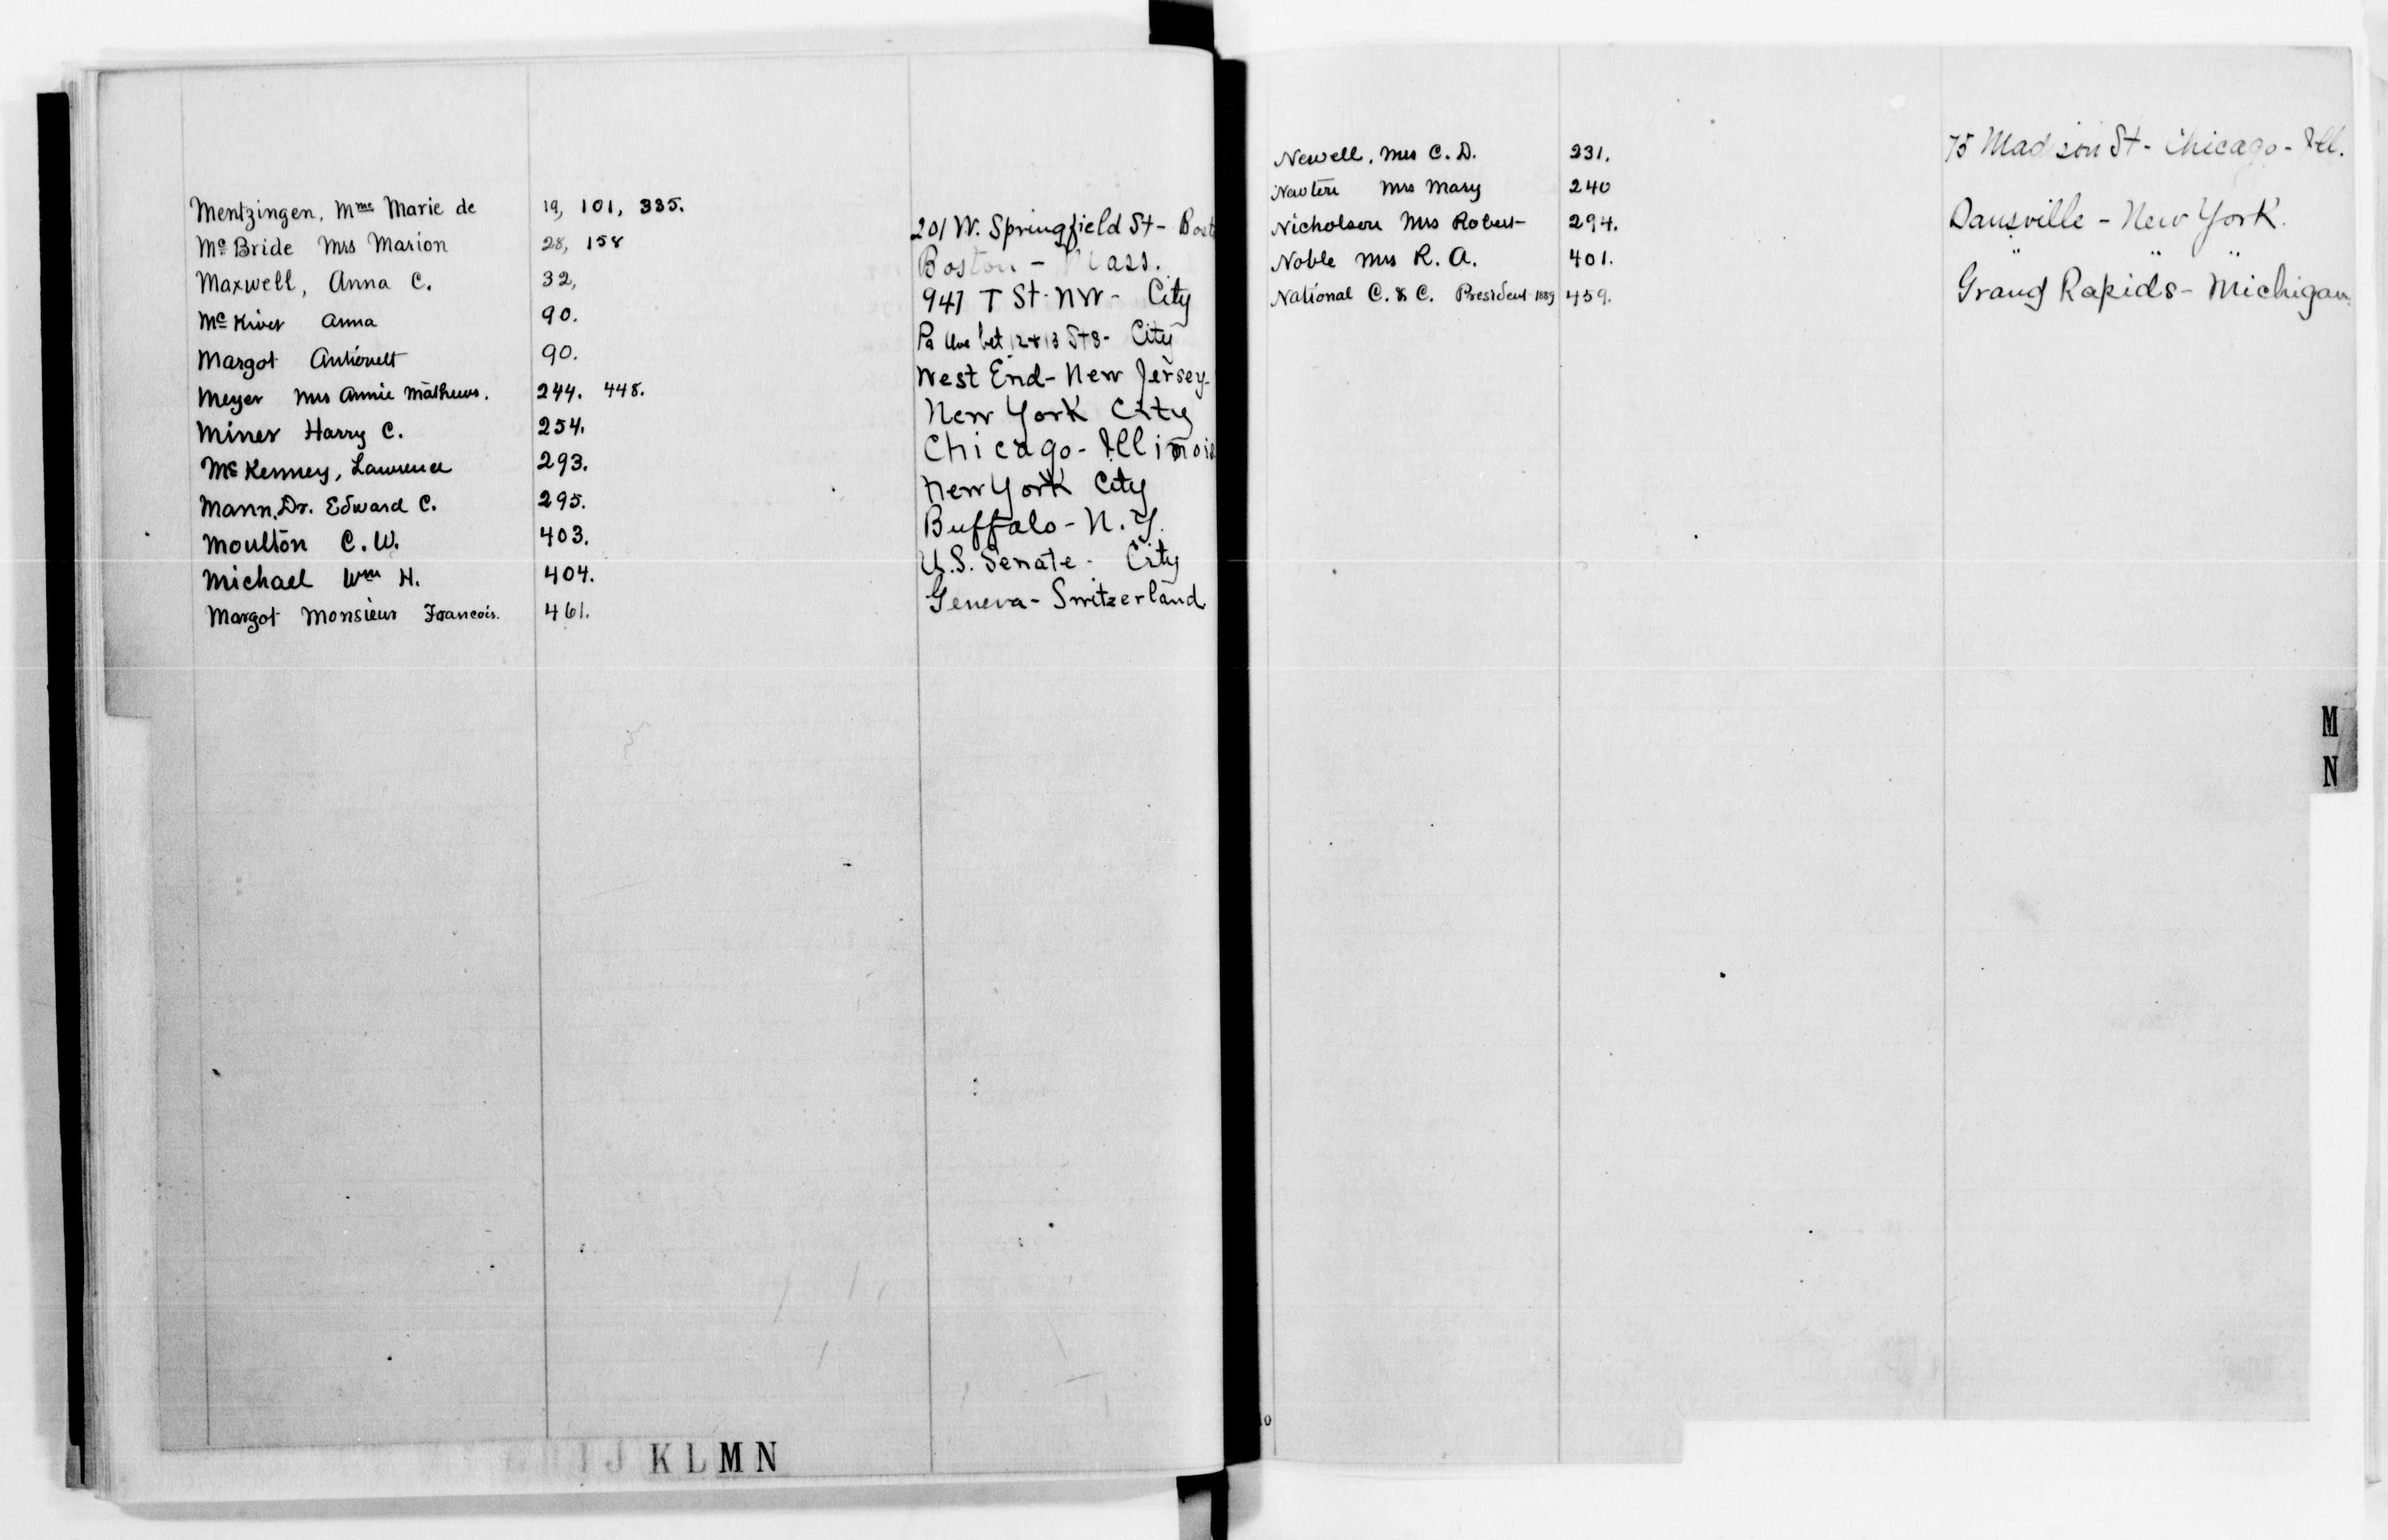 Mentzingen, Mme Marie de 19, 101, 335.
McBride Mrs Marion 28, 158 201 W. Springfield St - Bost
Maxwell, Anna C. 32, Boston - Mass.
McKiver Anna 90. 947 T St. NW - City
Margot 90. Pa Ave bet 12 & 13 Sts - City
Meyer Mrs Annie Mathews. 244. 448. West End - New Jersey -
Miner Harry C. 254. New York City
McKenney, Lawrence 293. Chicago - Illinois
Mann, Dr. Edward C. 295. New York City
Moulton C. W. 403. Buffalo - N. Y.
Michael Wm H. 404. U.S. Senate - City
Margot Monsieur Francois. 461. Geneva - Switzerland.
K L M N
Newell, Mrs C. D. 231. 75 Madison St - Chicago - Ill.
Newton Mrs Mary 240
Nicholson Mrs Robert 294. Dansville - New York.
Noble Mrs R. A. 401. " " "
National C. & C. President 1889 459. Grand Rapids - Michigan.
M
N